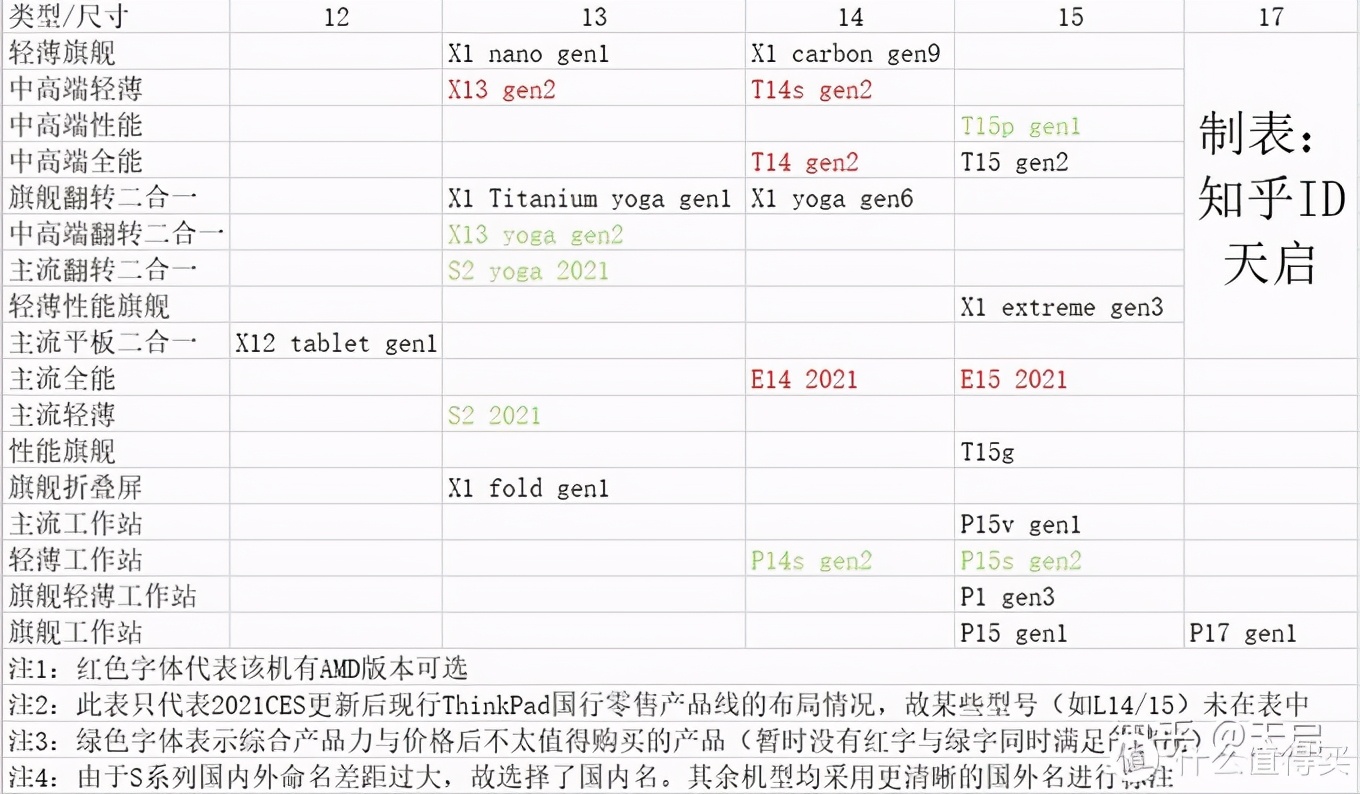 类型/尺寸 12 13 14 15 17
轻薄旗舰 X1 nano gen1 X1 carbon gen9
中高端轻薄 X13 gen2 T14s gen2
中高端性能 T15p gen1
制表：
中高端全能 T14 gen2 T15 gen2
知乎ID
旗舰翻转二合一 X1 Titanium yoga gen1 X1 yoga gen6
中高端翻转二合一 X13 yoga gen2
天启
主流翻转二合一 S2 yoga 2021
轻薄性能旗舰 X1 extreme gen3
主流平板二合一 X12 tablet gen1
主流全能 E14 2021 E15 2021
主流轻薄 S2 2021
性能旗舰 T15g
旗舰折叠屏 X1 fold gen1
主流工作站 P15v gen1
轻薄工作站 P14s gen2 P15s gen2
旗舰轻薄工作站 P1 gen3
旗舰工作站 P15 gen1 P17 gen1
注1：红色字体代表该机有AMD版本可选
注2：此表只代表2021CES更新后现行ThinkPad国行零售产品线的布局情况，故某些型号（如L14/15）未在表中
注3：绿色字体表示综合产品力与价格后不太值得购买的产品（暂时没有红字与绿字同时满足的
知乎 @天启
注4：由于S系列国内外命名差距过大，故选择了国内名。其余机型均采用更清晰的国外名进行标注
值 什么值得买